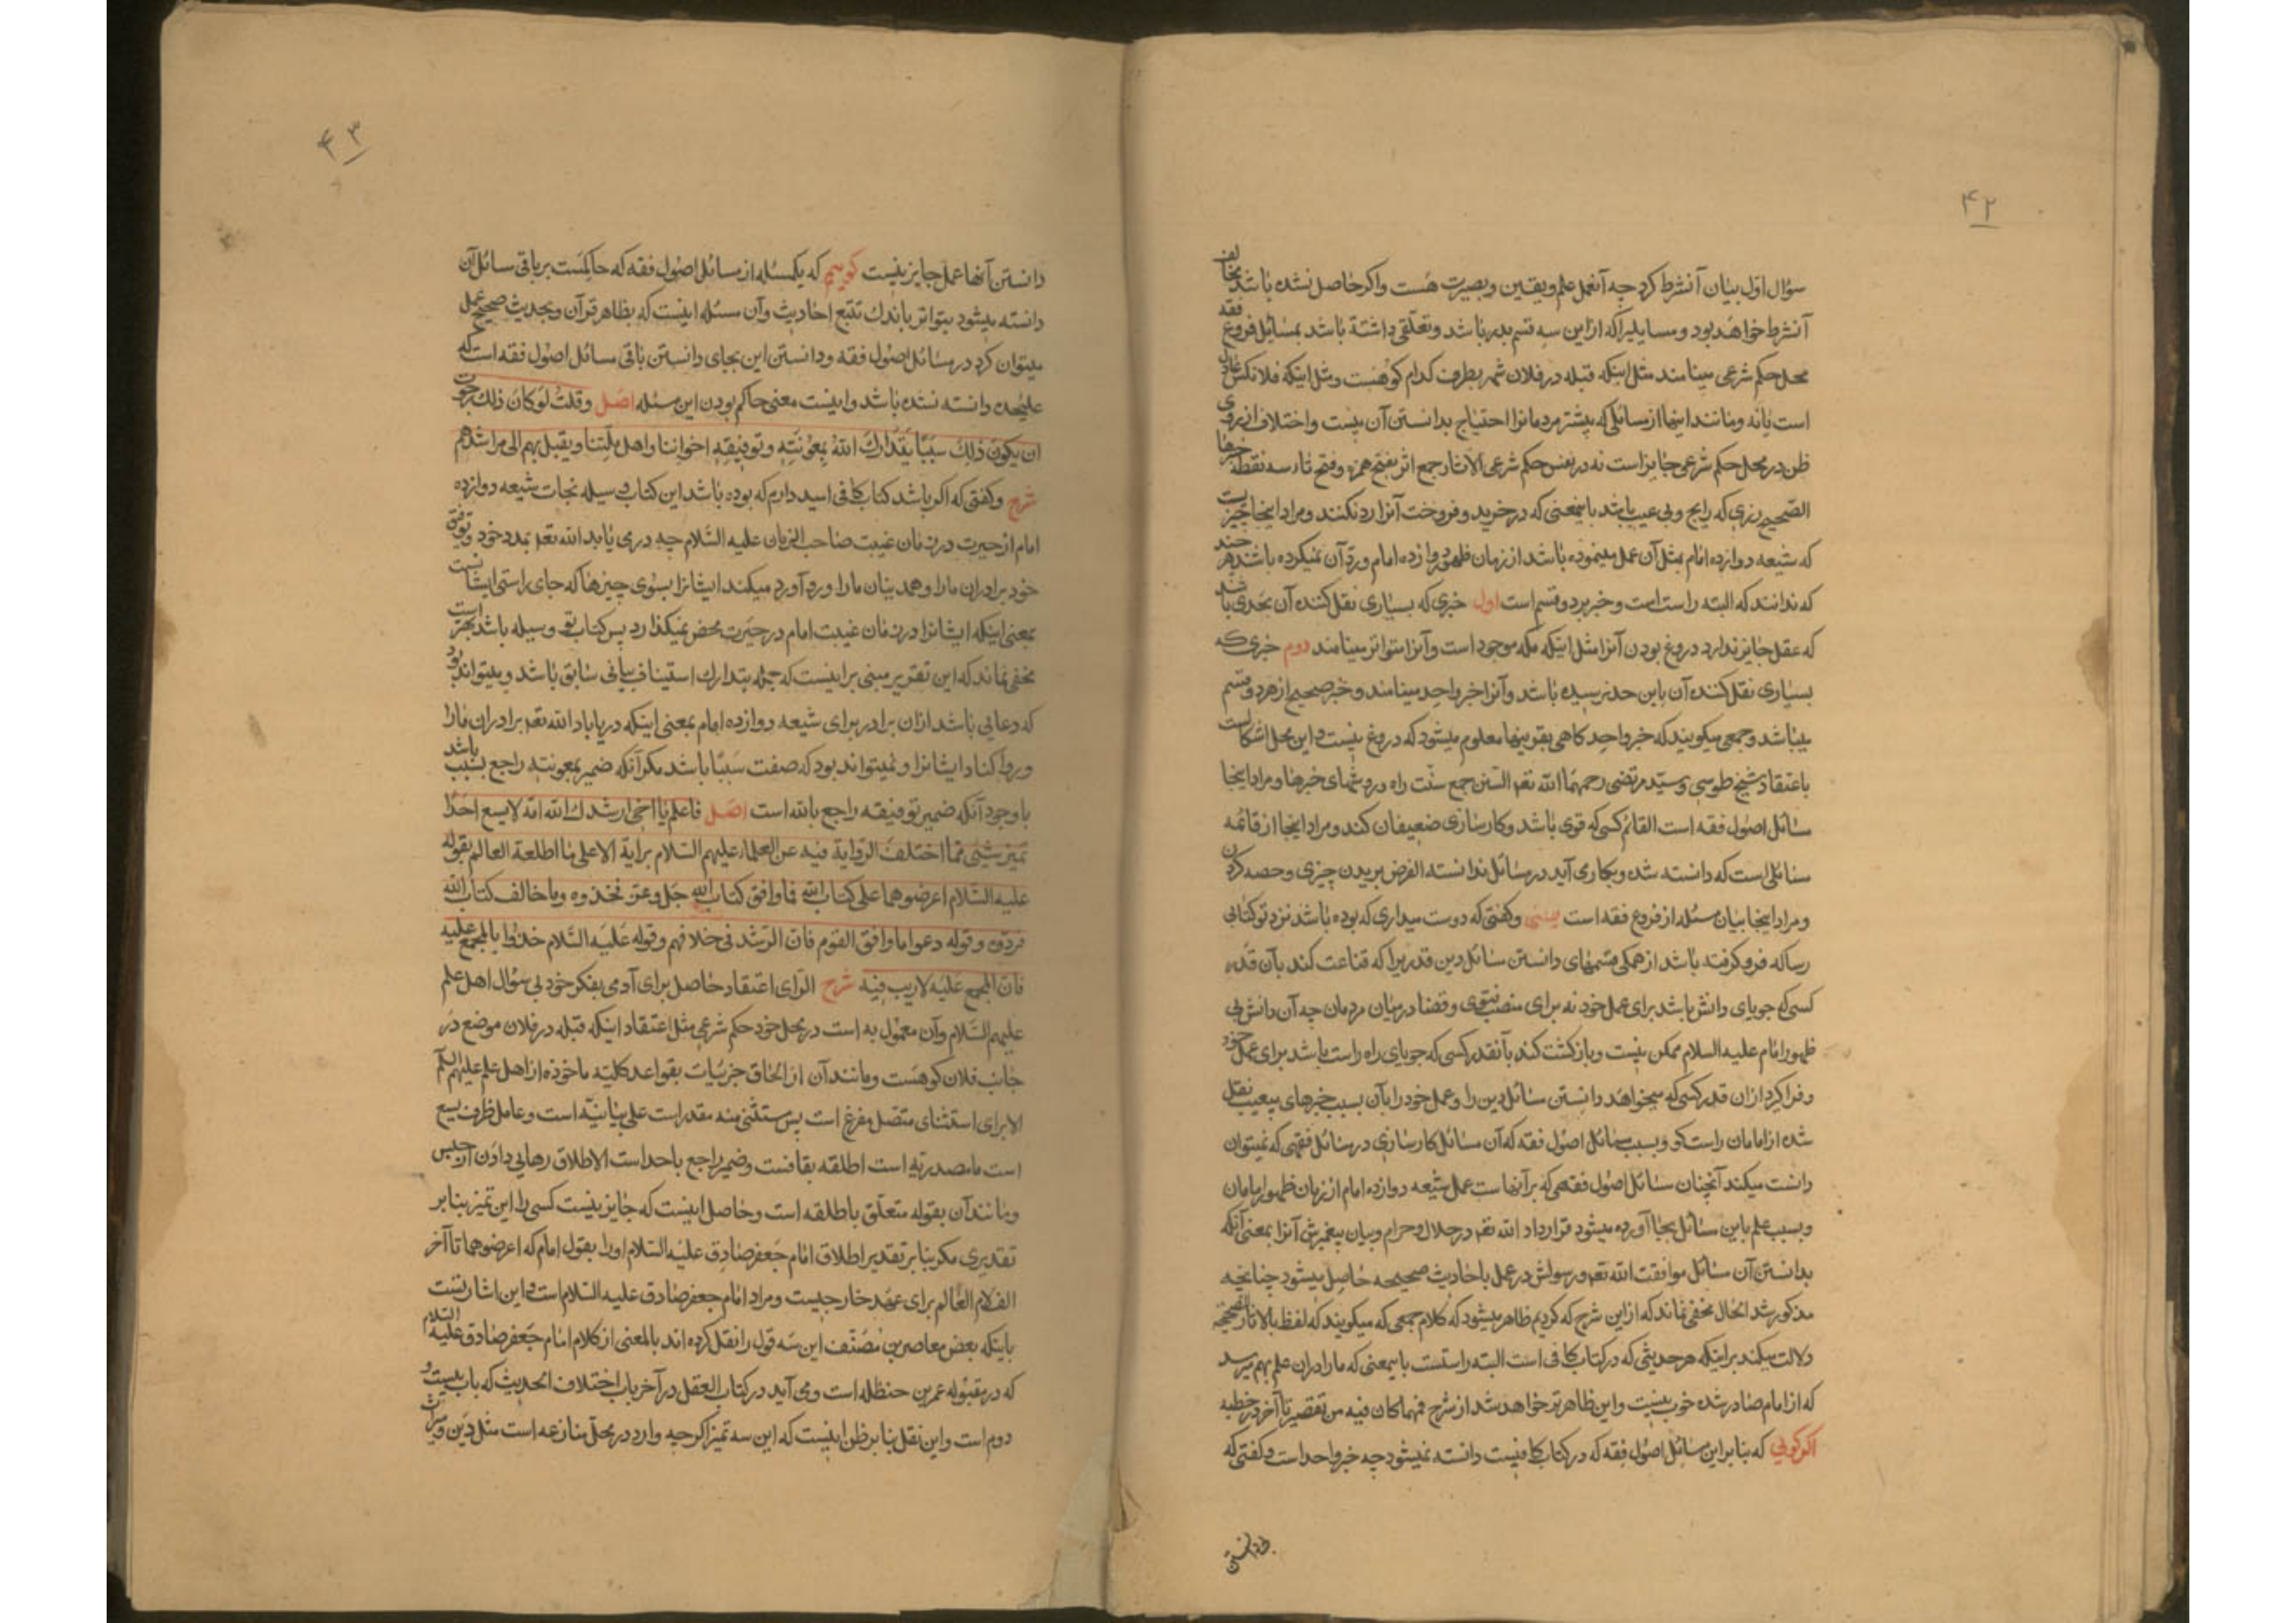 ۴۲
سؤال اول بیان آنشرط کرد چه آنعمل علم و یقین و بصیرت هست واکر حاصل نشده باشد مخالف
آنشرط خواهد بود و مسایلیرا که ازین سه قسم بدر باشد و تعلقی داشته باشد بمسائل فروع فقه
محل حکم شرعی مینامند مثل اینکه قبله در فلان شهر بطرف کدام کوهست و مثل اینکه فلانکس عادل
است یا نه و مانند اینها از مسائلی که بیشتر مردمانرا احتیاج بدانستن آن نیست و اختلاف از روی
ظن در محل حکم شرعی جایز است نه در نفس حکم شرعی الآثار جمع اثر بفتح همزه و فتح ثاء سه نقطه خبرها
الصحیح زری که رایج و بی عیب باشد باینمعنی که در خرید و فروخت آنرا رد نکنند و مراد اینجا خبریست
که شیعه دوازده امام بمثل آن عمل مینموده باشد از زمان ظهور دوازده امام و رد آن نمیکرده باشد هرچند
که ندانند که البته راست است و خبر بر دو قسم است اول خبری که بسیاری نقل کننده آن بحدی باشد
که عقل جایز ندارد دروغ بودن آنرا مثل اینکه مکه موجود است و آنرا متواتر مینامند دوم خبری که
بسیاری نقل کننده آن باین حد نرسیده باشد و آنرا خبر واحد مینامند و خبر صحیح از هر دو قسم
میباشد و جمعی میکویند که خبر واحد کاهی بقرینها معلوم میشود که دروغ نیست و این محل اشکالست
باعتقاد شیخ طوسی و سید مرتضی رحمهما الله تعه السنن جمع سنت راه و روشهای خبرها و مراد اینجا
مسائل اصول فقه است القائم کسی که قوی باشد و کارسازی ضعیفان کند و مراد اینجا از قائمه
مسائلی است که دانسته شده و بکار می آید در مسائل ندانسته الفرض بریدن چیزی و حصه کردن
و مراد اینجا بیان مسئله از فروع فقه است یعنی و کفتی که دوست میداری که بوده باشد نزد تو کتابی
رسا که فرو کرفته باشد از همکی قسمهای دانستن مسائل دین قدریرا که قناعت کند بآن قدر
کسی که جویای دانش باشد برای عمل خود نه برای منصب فتوی و قضا در میان مردمان چه آن دانش بی
ظهور امام علیه السلام ممکن نیست و بازکشت کند بآنقدر کسی که جویای راه راست باشد برای عمل خود
و فرا کرد ازان قدر کسی که میخواهد دانستن مسائل دین را و عمل خود را بآن بسبب خبرهای بیعیب نقل
شده از امامان راست کو و بسبب مسائل اصول فقه که آن مسائل کارسازی در مسائل فقهی که نمیتوان
دانست میکند آنچنان مسائل اصول فقهی که بر آنهاست عمل شیعه دوازده امام از زمان ظهور امامان
و بسبب علم باین مسائل بجا آورده میشود قرارداد الله تعه در حلال و حرام و بیان پیغمبرش آنرا بمعنی آنکه
بدانستن آن مسائل موافقت الله تعه و رسولش در عمل باحادیث صحیحه حاصل میشود چنانچه
مذکور شد الحال مخفی نماند که از این شرح که کردیم ظاهر میشود که کلام جمعی که میکویند که لفظ بالآثار الصحیحة
دلالت میکند بر اینکه هر حدیثی که در کتاب کافی است البته راستست باینمعنی که ما را دران علم بهم میرسد
که از امام صادر شده خوب نیست و این ظاهرتر خواهد شد از شرح فمهما کان فیه من تقصیر تا آخر در خطبه
اکر کویی که بنابر این مسائل اصول فقه که در کتاب کافیست دانسته نمیشود چه خبر واحد است و کفتی که
۴۳
دانستن آنها عمل جایز نیست کوییم که یکمسئله از مسائل اصول فقه که حاکمست بر باقی مسائل آن
دانسته میشود بتواتر باندک تتبع احادیث و آن مسئله اینست که بظاهر قرآن و بحدیث صحیح عمل
میتوان کرد در مسائل اصول فقه و دانستن این بجای دانستن باقی مسائل اصول فقه است که
علیحده دانسته نشده باشد و اینست معنی حاکم بودن این مسئله اصل وقلتُ لو کان ذلک رجوت
ان یکون ذلک سبباً یتدارک الله بمعونته و توفیقه اخواننا واهل ملّتنا ویقبل بهم الی مراشدهم
شرح و کفتی که اکر باشد کتاب کافی امید دارم که بوده باشد این کتاب وسیله نجات شیعه دوازده
امام از حیرت در زمان غیبت صاحب الزمان علیه السلام چه دری یابد الله تعه بمدد خود و توفیق
خود برادران ما را و همدینان ما را و رو آورد میکند ایشانرا بسوی چیزها که جای راستی ایشانست
بمعنی اینکه ایشانرا در زمان غیبت امام در حیرت محض نمیکذارد پس کتاب تو وسیله باشد بهتر است
مخفی نماند که این تقریر مبنی بر اینست که جمله یتدارک استیناف بیانی سابق باشد و میتواند بود
که دعایی باشد ازان برادر برای شیعه دوازده امام بمعنی اینکه دریاباد الله تعه برادران ما را
و رو آکناد ایشانرا و نمیتواند بود که صفت سبباً باشد مکر آنکه ضمیر بمعونته راجع بسبب باشد
با وجود آنکه ضمیر توفیقه راجع بالله است اصل فاعلم یا اخی ارشدک الله انه لا یسع احدا
تمییز شیٔ مما اختلف الروایة فیه عن العلماء علیهم السلام برایه الا علی ما اطلقه العالم بقوله
علیه السلام اعرضوهما علی کتاب الله فما وافق کتاب الله جل و عز فخذوه وما خالف کتاب الله
فردوه و قوله دعوا ما وافق القوم فان الرشد فی خلافهم وقوله علیه السلام خذوا بالمجمع علیه
فان المجمع علیه لاریب فیه شرح الرّای اعتقاد حاصل برای آدمی بفکر خود بی سؤال اهل علم
علیهم السلام وآن معمول به است در محل خود حکم شرعی مثل اعتقاد اینکه قبله در فلان موضع در
جانب فلان کوهست و مانند آن از الحاق جزئیات بقواعد کلیه ماخوذه از اهل علم علیهم السلم
الا برای استثنای متصل مفرغ است پس مستثنی منه مقدر است علی بنائیّه است و عامل ظرف یسع
است ما مصدریه است اطلقه بقافست و ضمیر راجع باحد است الاطلاق رهایی دادن از حبس
و مانند آن بقوله متعلق باطلقه است و حاصل اینست که جایز نیست کسی را این تمیز بنابر
تقدیری مکر بنابر تقدیر اطلاق امام جعفر صادق علیه السلام او را بقول امام که اعرضوهما تا آخر
الف لام العالم برای عهد خارجیست و مراد امام جعفر صادق علیه السلام است و این اشارتست
باینکه بعض معاصرین مصنف این سه قول را نقل کرده اند بالمعنی از کلام امام جعفر صادق علیه السلام
که در مقبوله عمر بن حنظله است و می آید در کتاب العقل در آخر باب اختلاف الحدیث که باب بیست و
دوم است و این نقل بنابر ظن اینست که این سه تمیز اکرچه وارد در محل منازعه است مثل دَین و میراث